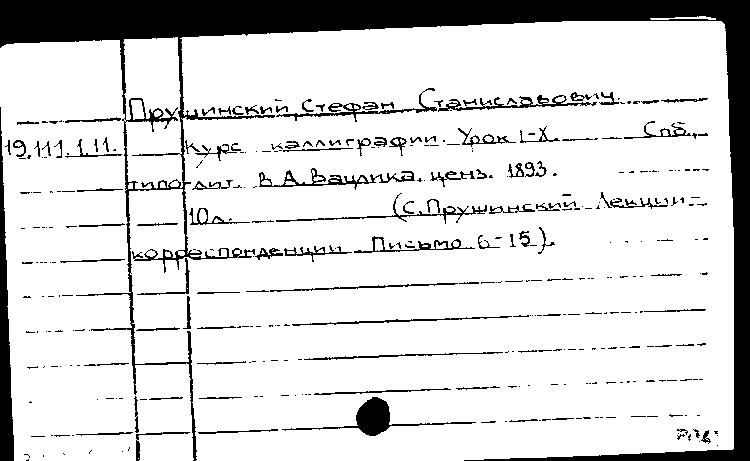 Прушинский, Стефан Станиславович.
19.111.1.11. Курс каллиграфии. Урок I-X. Спб.,
типо-лит. В.А.Вацлика. ценз. 1893.
10л. (С.Прушинский Лекции-
корреспонденции Письмо 6-15).